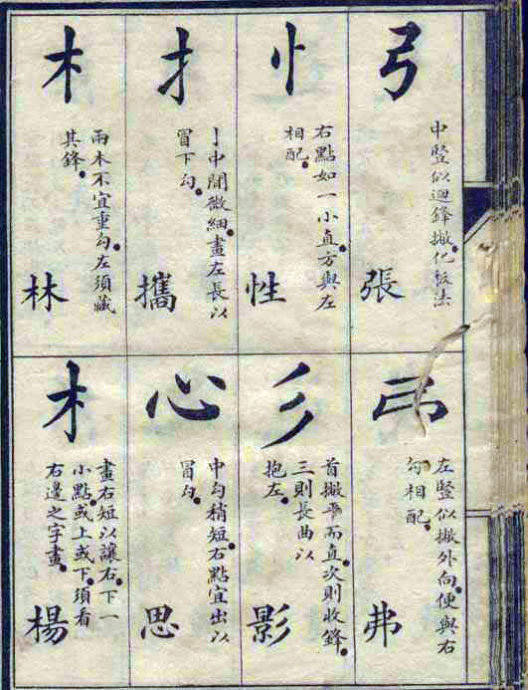 弓
中豎似迴鋒撇化板法
張
忄
右點如一小直方與左
相配
性
扌
亅中間微細畫左長以
冒下勾
攜
木
兩木不宜重勾左須藏
其鋒
林
左豎似撇外向便與右
勾相配
弗
彡
首撇平而直次則收鋒
三則長曲以
抱左
影
心
中勾稍短右點宜出以
冒勾
思
木
畫右短以讓右下一
小點或上或下須看
右邊之字畫
楊